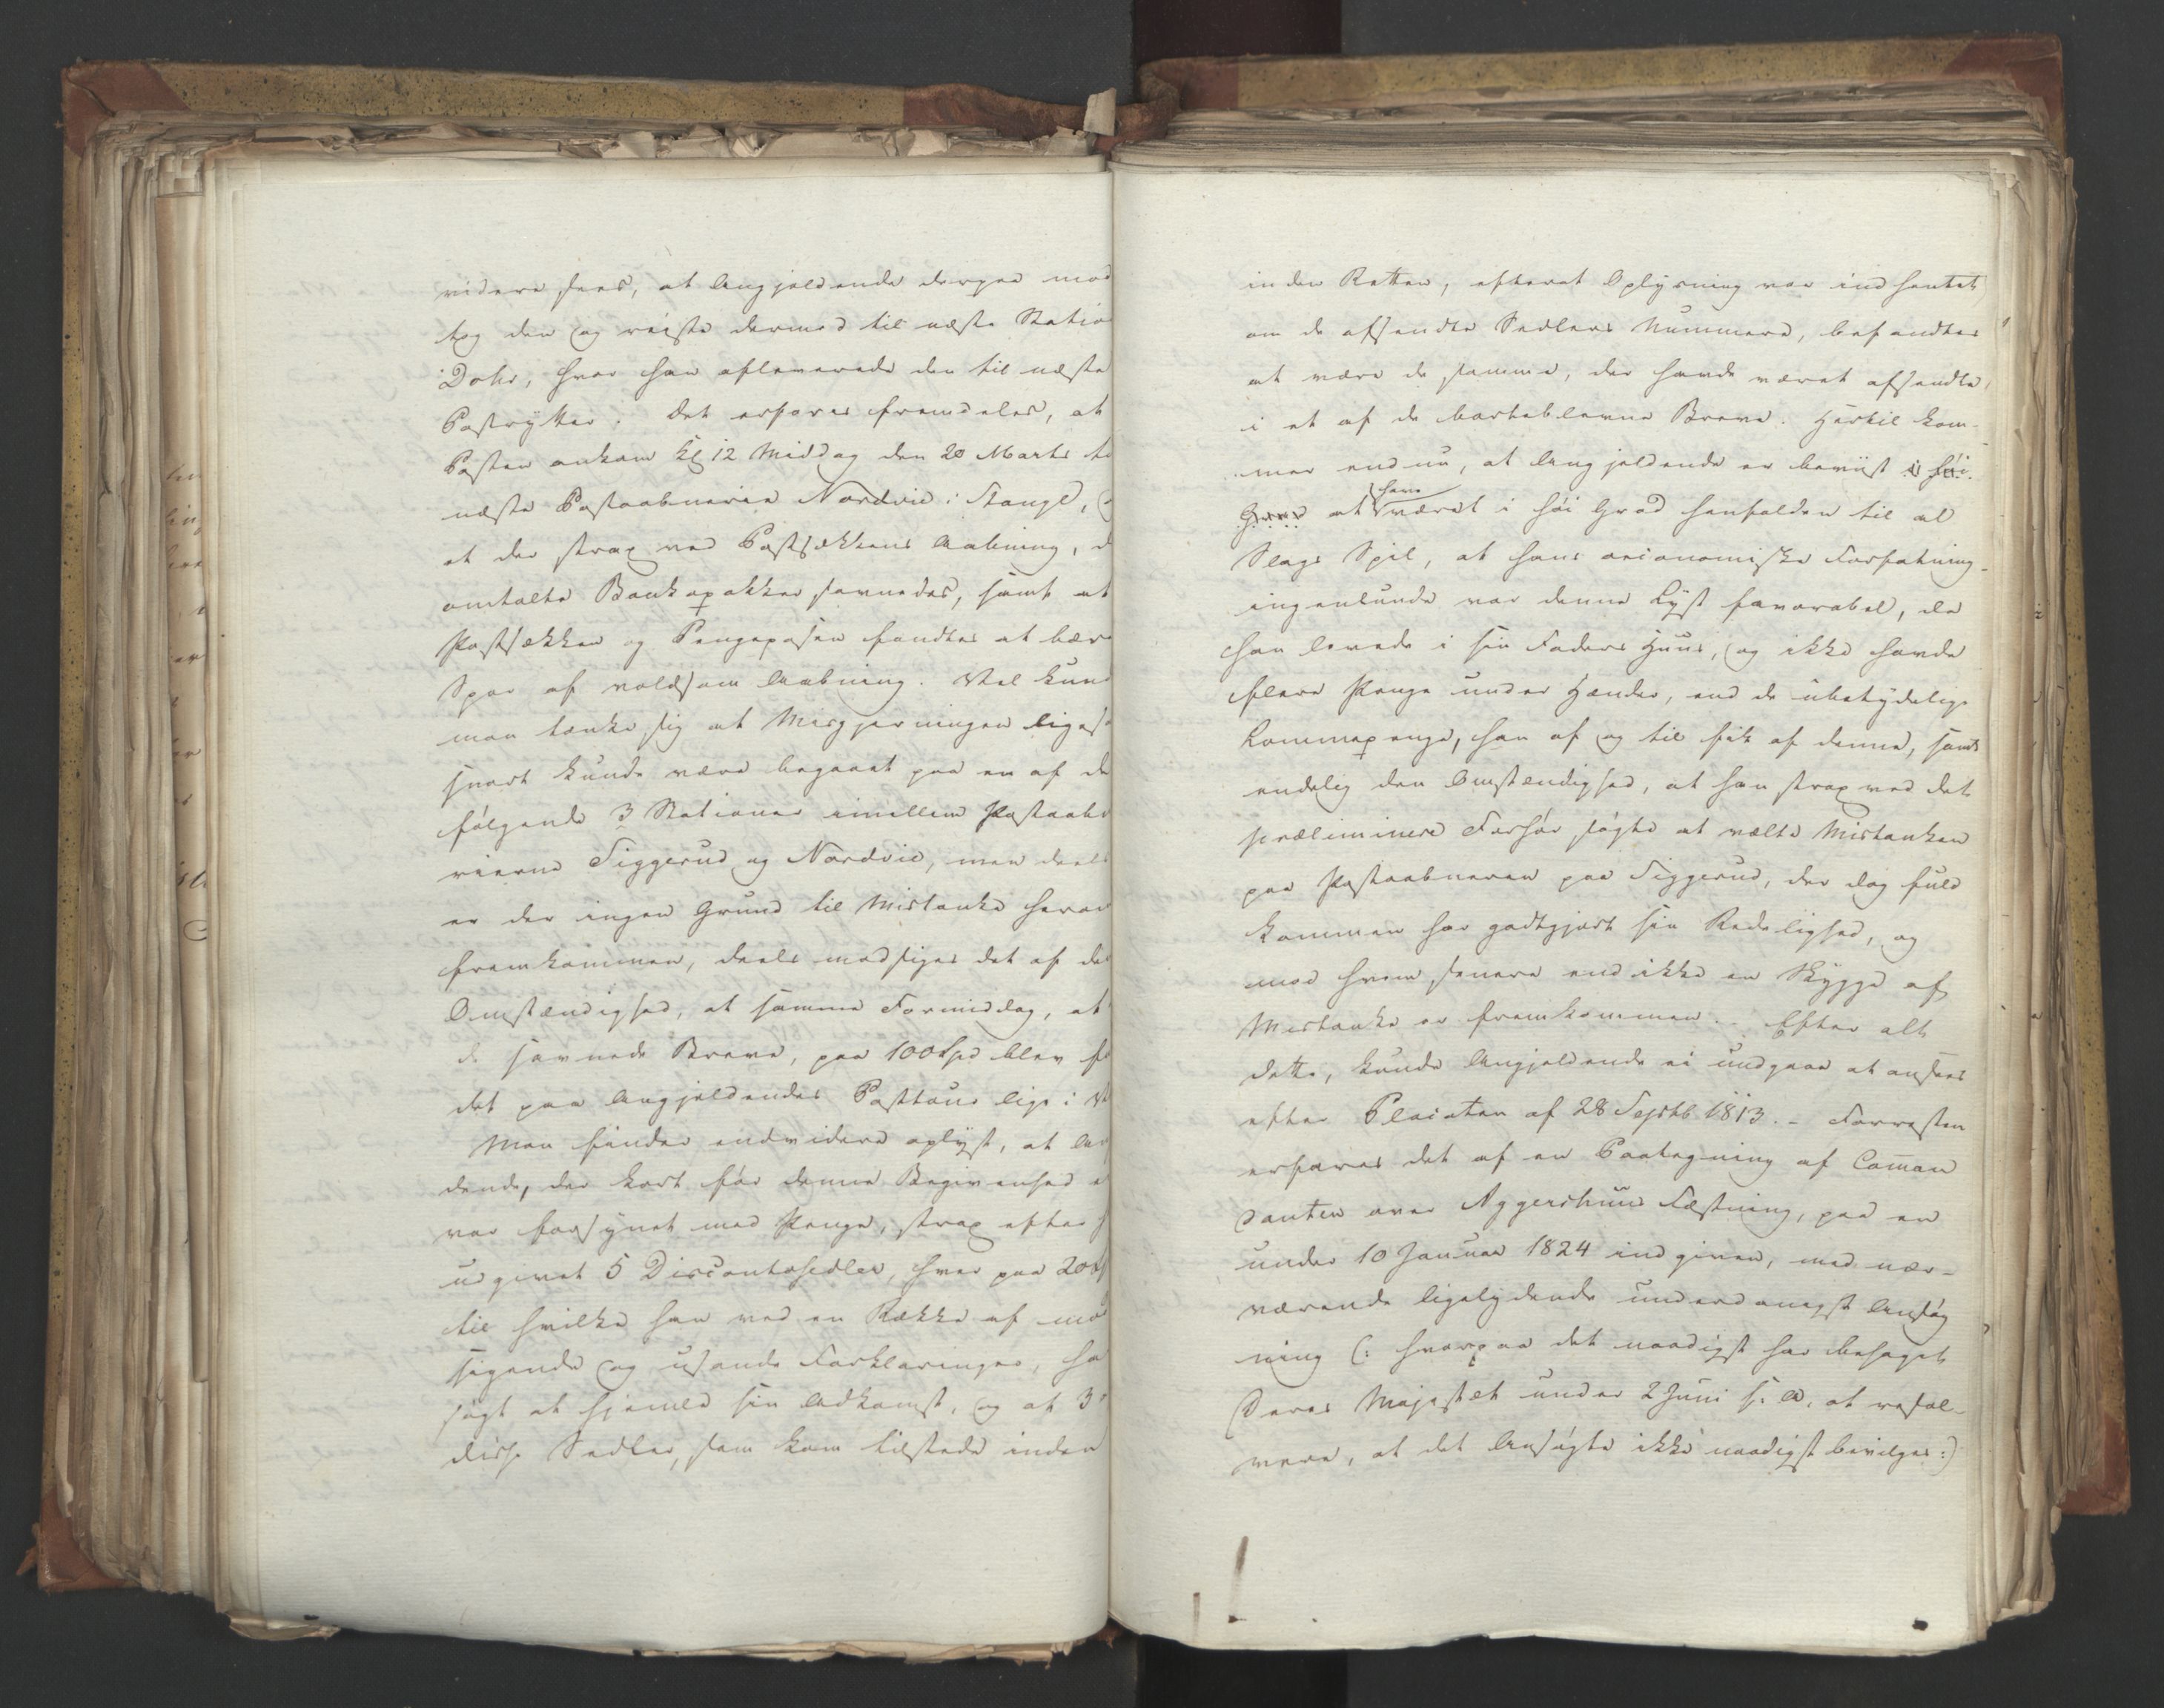 videre sees, at Angjeldende derpaa mod
tog den og reiste dermed til næste Statio
Dohr, hvor han afleverede den til næste
Postrytter. Det erfares fremdeles, at
Posten ankom Kl 12 Middag den 20 Marts ti
næste Postaabnerie Nordvie i Stange, o
at der strax ved Postsækkens Aabning, d
omtalte Bankopakker savnedes, samt at
Postsækken og Pengeposen fandtes at bære
Spor af voldsom Aabning. Vel kund
man tænke sig at Misgjerningen ligesa
snart kunde være begaaet paa en af de
følgende 3 Stationer imellem Postaabn
rierne Siggerud og Nordvie, men deels
er der ingen Grund til Mistanke herom
fremkommen, deels modsiges det af de
Omstændighed, at samme Formiddag, at
de savnede Breve, paa 100 Spd blev f
det paa Angjeldendes Posttour lige i
Man finder endvidere oplyst, at An
dende, der kort før denne Begivenhed e
var forsynet med Penge, strax efter h
udgivet 5 Discontosedler, hver paa 20 S
til hvilke han ved en Række af mod
sigende og usande Forklaringer, ha
søgt at hjemle sin Adkomst, og at 3
disse Sedler, som kom tilstede inden
inden Retten, efterat Oplysning var indhentet
om de afsendte Sedlers Nummere, befandtes
at være de samme, der havde været afsendte
i et af de bortblevne Breve. Hertil kom-
mer endnu, at Angjeldende er beviist i høi
Grad at have været i høi Grad henfalden til al
Slags Spil, at hans oeconomiske Forfatning
ingenlunde var denne Lyst favorabel, da
han levede i sin Faders Huus, og ikke havde
flere Penge under Hænder, end de ubetydelige
Lommepenge, han af og til fik af denne, samt
endelig den Omstændighed, at han strax ved det
præliminere Forhør søgte at vælte Mistanken
paa Postaabneren paa Siggerud, der dog fuld
kommen har godtgjort sin Redelighed, og
mod hvem senere end ikke en Skygge af
Mistanke er fremkommen. Efter alt
dette, kunde Angjeldende ei undgaae at ansees
efter Placaten af 28 Septb 1813. - Forresten
erfares det af en Paategning af Com̄an
danten over Aggershuus Fæstning, paa en
under 10 Januar 1824 indgiven, med nær-
værende ligelydende underdanigst Ansøg
ning (: hvorpaa det naadigst har behaget
Deres Majestæt under 2 Juni s. A. at resol-
vere, at det Ansøgte ikke naadigst bevilges :)